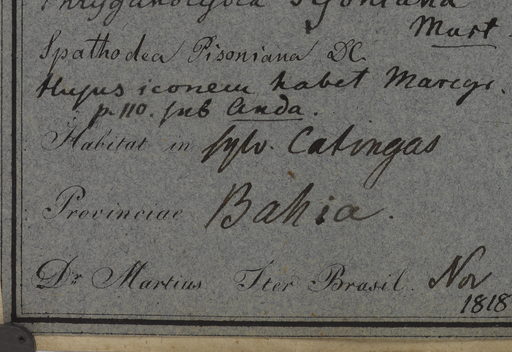 Phryganocydia Pisoniana
Mart.
Spathodea Pisoniana DC
Hujus iconem habet Marcgr.
p. 110. sub Anda.
Habitat in sylv. Catingas
Provinciae Bahia.
Dr. Martius Iter Brasil. Nov
1818